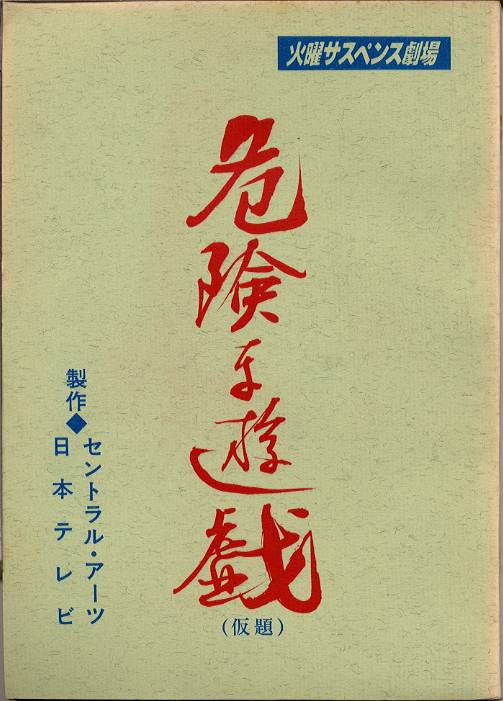 火曜サスペンス劇場
危険な遊戯
(仮題)
製作◆セントラル・アーツ
日本テレビ